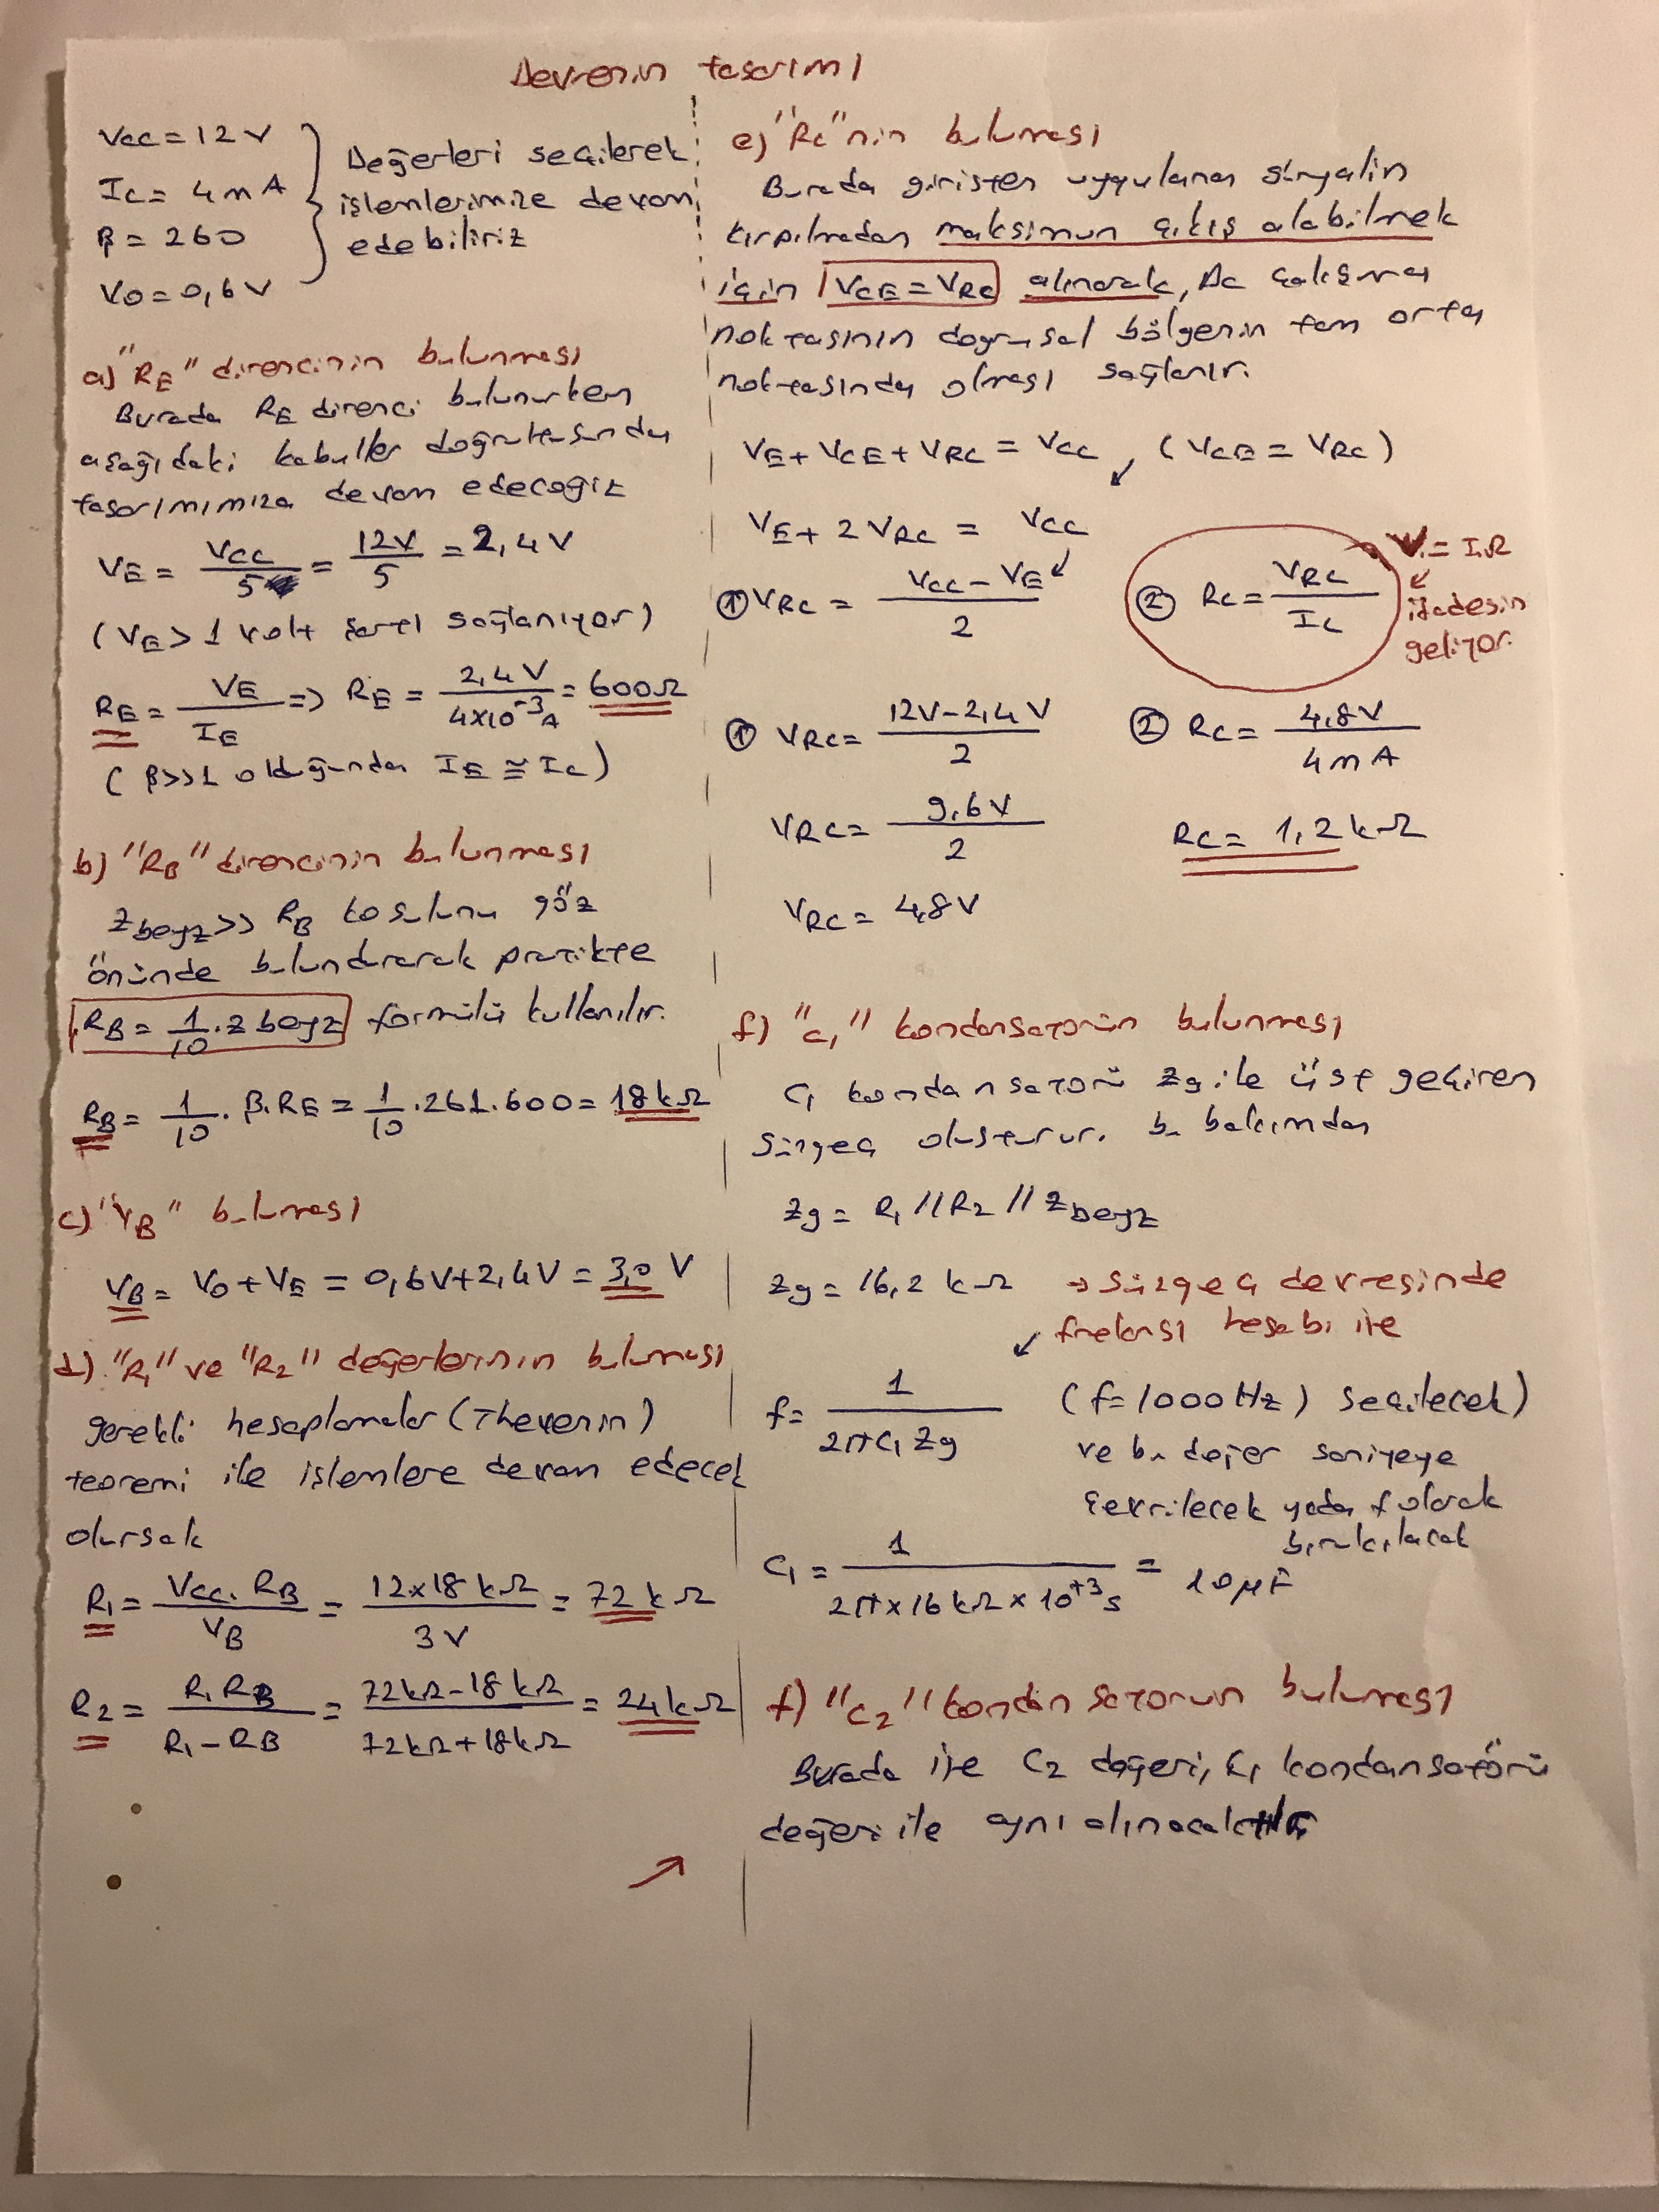 Devrenin tasarımı
VCC = 12 V
IC = 4 mA
β = 260
V0 = 0,6 V
Değerleri seçilerek
işlemlerimize devam
edebiliriz
a) "RE" direncinin bulunması
Burada RE direnci bulunurken
aşağıdaki kabuller doğrultusunda
tasarımımıza devam edeceğiz
VE = VCC / 5 = 12V / 5 = 2,4 V
(VE > 1 volt şartı sağlanıyor)
RE = VE / IE => RE = 2,4 V / 4x10^-3 A = 600Ω
(β>>1 olduğundan IE ≅ IC)
b) "RB" direncinin bulunması
Zbeyz >> RB koşulunu göz
önünde bulundurarak pratikte
RB = 1/10 . Zbeyz formülü kullanılır.
RB = 1/10 . β.RE = 1/10 . 261.600 = 18kΩ
c) "VB" bulunması
VB = V0 + VE = 0,6V + 2,4V = 3,0 V
d) "R1" ve "R2" değerlerinin bulunması
gerekli hesaplamalar (Thevenin)
teoremi ile işlemlere devam edecek
olursak
R1 = VCC . RB / VB = 12x18 kΩ / 3 V = 72 kΩ
R2 = R1 RB / R1 - RB = 72kΩ - 18 kΩ / 72kΩ + 18kΩ = 24kΩ
e) "RC" nin bulunması
Burada girişten uygulanan sinyalin
kırpılmadan maksimun çıkış alabilmek
için VCE = VRC alınarak, DC çalışma
noktasının doğrusal bölgenin tam orta
noktasında olması sağlanır.
VE + VCE + VRC = VCC , (VCE = VRC)
VE + 2 VRC = VCC
① VRC = VCC - VE / 2
② RC = VRC / IC
V = I.R
ifadesin
geliyor.
① VRC = 12V - 2,4 V / 2
② RC = 4,8V / 4 mA
VRC = 9,6 V / 2
RC = 1,2 kΩ
VRC = 4,8 V
f) "C1" kondansatörün bulunması
C1 kondansatörü Zg ile üst geçiren
süzgeç oluşturur. bu bakımdan
Zg = R1 // R2 // Zbeyz
Zg = 16,2 kΩ → süzgeç devresinde
frekansı hesabı ile
f = 1 / 2πC1 Zg (f = 1000 Hz) seçilecek)
ve bu değer saniyeye
çevrilecek yada f olarak
bırakılacak
C1 = 1 / 2π x 16 kΩ x 10^+3 s = 10 µF
f) "C2" kondansatorun bulunması
Burada ise C2 değeri, C1 kondansatörü
değeri ile aynı alınacaktır